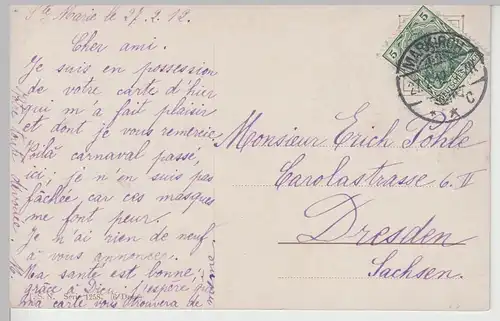 Ste Marie le 27.2.12.
Cher ami.
Je suis en possession
de votre carte d'hier
qui m'a fait plaisir
et dont je vous remercie.
Voilà carnaval passé,
ici; je n'en suis pas
fâchée, car ces masques
me font peur.
Je n'ai rien de neuf
à vous annoncer.
Ma santé est bonne,
grâce à Dieu. J'espère que
ma carte vous trouvera de
même.
Monsieur Erich Pohle
Carolastrasse 6. II
Dresden
Sachsen.
5
5
MARKIRCH
C
Serie 1258.